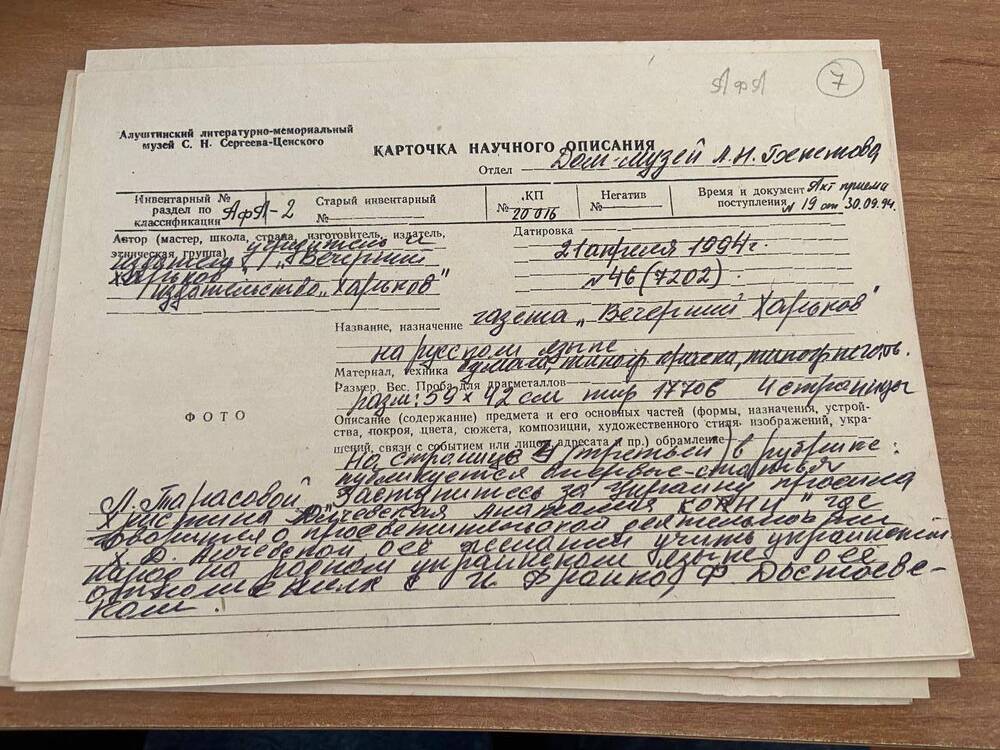 АФА
7
Алуштинский литературно-мемориальный
музей С. Н. Сергеева-Ценского
КАРТОЧКА НАУЧНОГО ОПИСАНИЯ
Отдел Дом-музей А.Н. Бекетова
Инвентарный №
раздел по
классификации АфА-2
Старый инвентарный
№
КП
№ 20016
Негатив
№
Время и документ Акт приема
поступления N 19 от 30.09.94.
Автор (мастер, школа, страна, изготовитель, издатель,
этническая группа) учредитель и
издатель „Вечерний
Харьков"
издательство „Харьков"
Датировка
21 апреля 1994г.
N 46 (7202)
Название, назначение газета „Вечерний Харьков"
на русском языке
Материал, техника бумага, типогр. краска, типогр. печать.
Размер. Вес. Проба для драгметаллов
разм: 59 × 42 см тир 17706 4 страницы
ФОТО
Описание (содержание) предмета и его основных частей (формы, назначения, устрой-
ства, покроя, цвета, сюжета, композиции, художественного стиля, изображений, укра-
шений, связи с событием или лицом, адресата и пр.) обрамление
На странице 3 (третьей) в рубрике:
публикуется впервые статья
Л. Тарасовой „Заступитесь за Украину просила
Христина Алчевская" где
говорится о просветительской деятельности
Х. Д. Алчевской, о её желании учить украинский
народ на родном украинском языке, о её
отношениях с И Франко, Ф Достоевс-
ким.